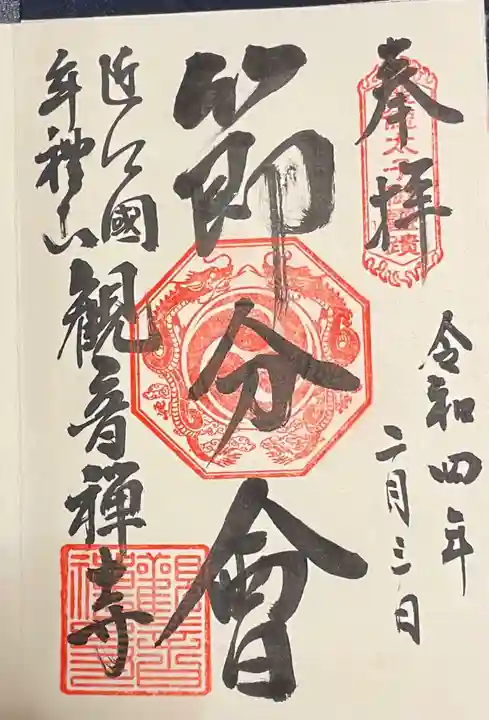 奉拝
令和四年
二月三日
節分會
近江國
年禮山
観音禅寺